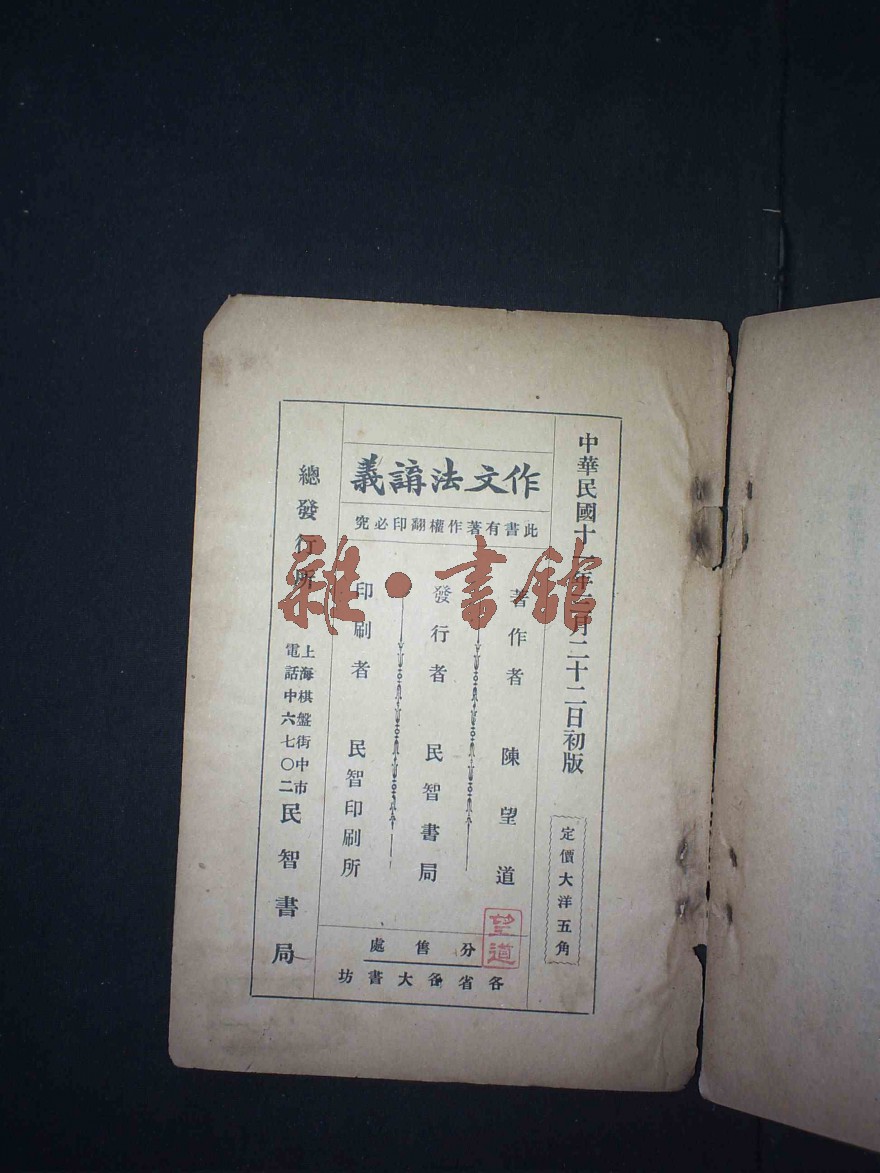 中華民國十一年月二十二日初版
定價大洋五角
作文法講義
此書有著作權翻印必究
著作者 陳望道
發行者 民智書局
印刷者 民智印刷所
望道
分售處
各省各大書坊
總發行所
上海棋盤街中市
電話中六七〇二
民智書局
雜·書館